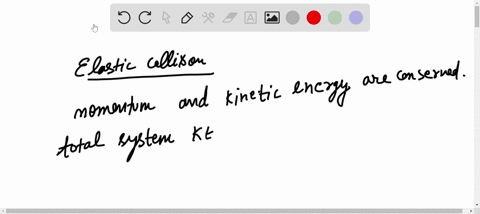 Elastic collision
momentum and kinetic energy are conserved.
total system KE